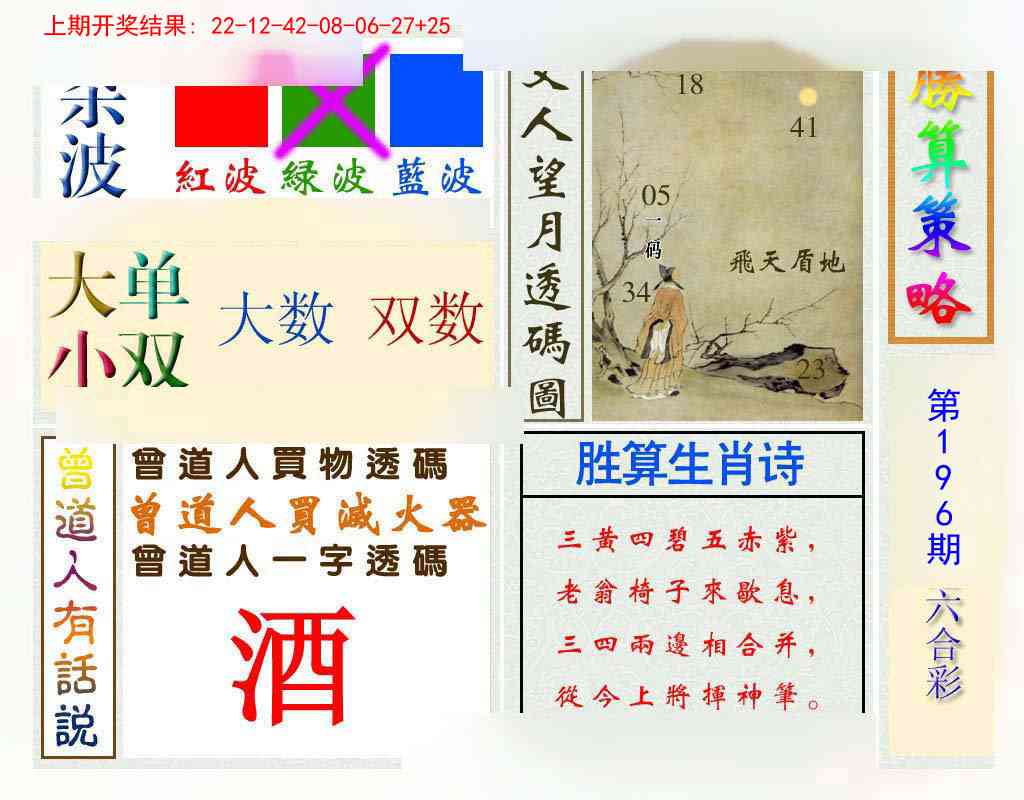 上期开奖结果: 22-12-42-08-06-27+25
波
紅波 緑波 藍波
大单
小双
大数 双数
人望月透碼圖
18
41
05
一码
飛天盾地
34
23
勝算策略
第196期
六合彩
曾道人有話説
曾道人買物透碼
曾道人買滅火器
曾道人一字透碼
酒
胜算生肖诗
三黃四碧五赤紫,
老翁椅子來歇息,
三四兩邊相合并,
從今上將揮神筆。